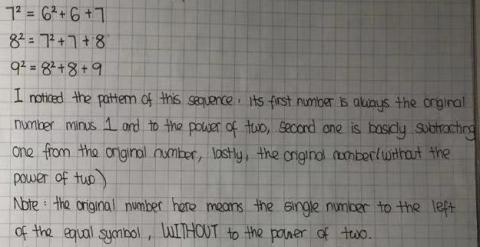 7² = 6² + 6 + 7
8² = 7² + 7 + 8
9² = 8² + 8 + 9
I noticed the pattern of this sequence. Its first number is always the original
number minus 1 and to the power of two, second one is basicly subtracting
one from the original number, lastly, the original number(without the
power of two)
Note: the original number here means the single number to the left
of the equal symbol, WITHOUT to the power of two.